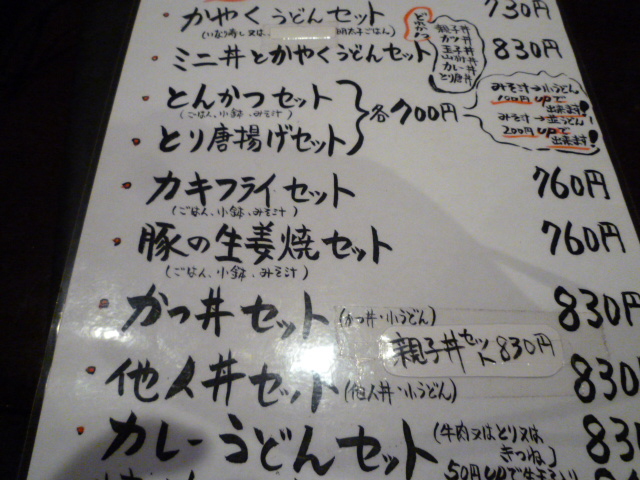 かやくうどんセット 730円
(いなり寿し又は 明太子ごはん)
ミニ丼とかやくうどんセット 830円
どれか1つ
親子丼
カツ丼
玉子丼
カレー丼
とり唐丼
とんかつセット
(ごはん、小鉢、みそ汁)
とり唐揚げセット
各700円
みそ汁→小うどん
100円UPで
出来ます!
みそ汁→並うどん
200円UPで
出来ます!
カキフライセット 760円
(ごはん、小鉢、みそ汁)
豚の生姜焼セット 760円
(ごはん、小鉢、みそ汁)
かつ丼セット(かつ丼・小うどん) 830円
親子丼セット830円
他人丼セット(他人丼・小うどん) 830
カレーうどんセット(牛肉又はとり又は 83
きつね)
50円UPで